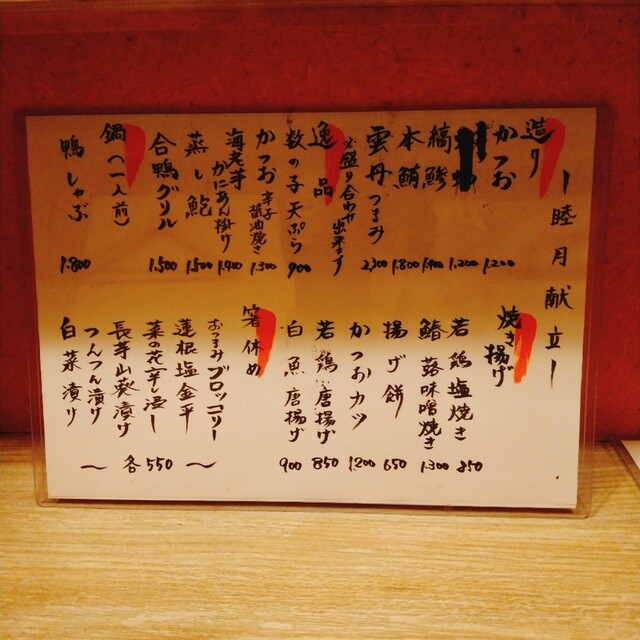 ー睦月献立ー
造り
かつお 1.200
1.200
縞鯵 1.400
本鮪 1.800
雲丹つまみ 2.300
※盛り合わせ出来ます
逸品
数の子天ぷら 900
かつお辛子醤油焼き 1.300
海老芋かにあん掛け 1.400
蒸し鮑 1.500
合鴨グリル 1.500
鍋(一人前)
鴨しゃぶ 1.800
焼き揚げ
若鶏塩焼き 850
鰆蕗味噌焼き 1.300
揚げ餅 650
かつおカツ 1.200
若鶏唐揚げ 850
白魚唐揚げ 900
箸休め
おつまみブロッコリー
蓮根塩金平
菜の花辛し浸し
長芋山葵漬け
つんつん漬け
白菜漬け
〜各550〜